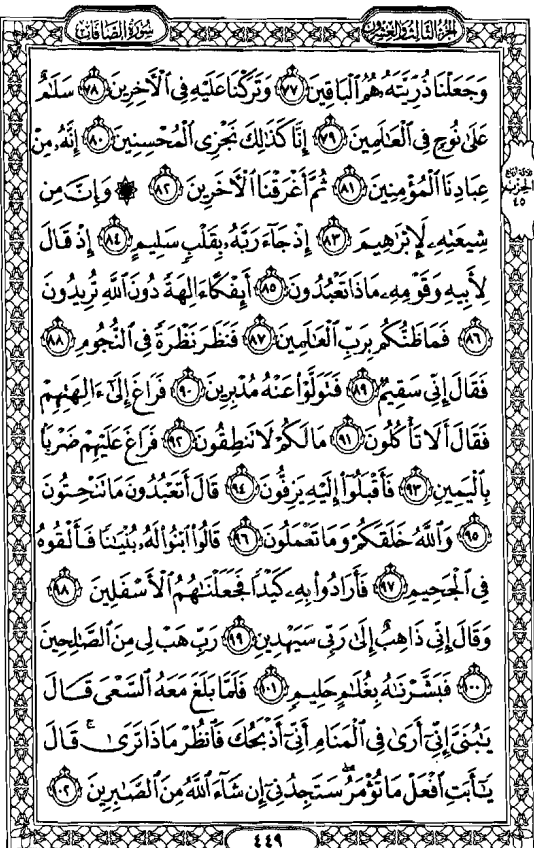 سُورَةُ الصَّافَّاتِ
الجُزْءُ الثَّالِثُ وَالعِشْرُونَ
وَجَعَلْنَا ذُرِّيَّتَهُۥ هُمُ ٱلْبَاقِينَ ٧٧ وَتَرَكْنَا عَلَيْهِ فِى ٱلْأَخِرِينَ ٧٨ سَلَٰمٌ
عَلَىٰ نُوحٍ فِى ٱلْعَٰلَمِينَ ٧٩ إِنَّا كَذَٰلِكَ نَجْزِى ٱلْمُحْسِنِينَ ٨٠ إِنَّهُۥ مِنْ
عِبَادِنَا ٱلْمُؤْمِنِينَ ٨١ ثُمَّ أَغْرَقْنَا ٱلْأَخَرِينَ ٨٢ ۞ وَإِنَّ مِن
شِيعَتِهِۦ لَإِبْرَٰهِيمَ ٨٣ إِذْ جَآءَ رَبَّهُۥ بِقَلْبٍ سَلِيمٍ ٨٤ إِذْ قَالَ
لِأَبِيهِ وَقَوْمِهِۦ مَاذَا تَعْبُدُونَ ٨٥ أَئِفْكًا ءَالِهَةً دُونَ ٱللَّهِ تُرِيدُونَ
٨٦ فَمَا ظَنُّكُم بِرَبِّ ٱلْعَٰلَمِينَ ٨٧ فَنَظَرَ نَظْرَةً فِى ٱلنُّجُومِ ٨٨
فَقَالَ إِنِّى سَقِيمٌ ٨٩ فَتَوَلَّوْا۟ عَنْهُ مُدْبِرِينَ ٩٠ فَرَاغَ إِلَىٰٓ ءَالِهَتِهِمْ
فَقَالَ أَلَا تَأْكُلُونَ ٩١ مَا لَكُمْ لَا تَنطِقُونَ ٩٢ فَرَاغَ عَلَيْهِمْ ضَرْبًۢا
بِٱلْيَمِينِ ٩٣ فَأَقْبَلُوٓا۟ إِلَيْهِ يَزِفُّونَ ٩٤ قَالَ أَتَعْبُدُونَ مَا تَنْحِتُونَ
٩٥ وَٱللَّهُ خَلَقَكُمْ وَمَا تَعْمَلُونَ ٩٦ قَالُوا۟ ٱبْنُوا۟ لَهُۥ بُنْيَٰنًا فَأَلْقُوهُ
فِى ٱلْجَحِيمِ ٩٧ فَأَرَادُوا۟ بِهِۦ كَيْدًا فَجَعَلْنَٰهُمُ ٱلْأَسْفَلِينَ ٩٨
وَقَالَ إِنِّى ذَاهِبٌ إِلَىٰ رَبِّى سَيَهْدِينِ ٩٩ رَبِّ هَبْ لِى مِنَ ٱلصَّٰلِحِينَ
١٠٠ فَبَشَّرْنَٰهُ بِغُلَٰمٍ حَلِيمٍ ١٠١ فَلَمَّا بَلَغَ مَعَهُ ٱلسَّعْىَ قَالَ
يَٰبُنَىَّ إِنِّىٓ أَرَىٰ فِى ٱلْمَنَامِ أَنِّىٓ أَذْبَحُكَ فَٱنظُرْ مَاذَا تَرَىٰ ۚ قَالَ
يَٰٓأَبَتِ ٱفْعَلْ مَا تُؤْمَرُ ۖ سَتَجِدُنِىٓ إِن شَآءَ ٱللَّهُ مِنَ ٱلصَّٰبِرِينَ ١٠٢
٤٤٩
٤٥